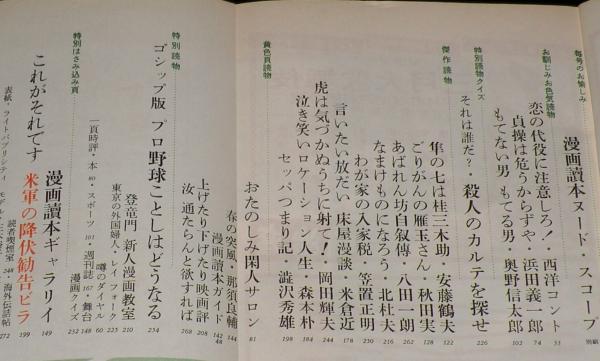 毎号のお愉しみ
漫画讀本ヌード・スコープ 別刷
お馴じみお色気読物
恋の代役に注意しろ!・西洋コント 53
貞操は危うからずや・浜田義一郎 74
もてない男 もてる男・奥野信太郎 102
特別読物クイズ
それは誰だ?・殺人のカルテを探せ 226
傑作読物
隼の七は桂三木助・安藤鶴夫 122
ごりがんの雁玉さん・秋田実 128
あばれん坊自叙傳・八田一朗 262
なまけものになろう・北杜夫 216
わが家の入家税・笠置正明 230
言いたい放だい 床屋漫談・米倉近 178
虎は気づかぬうちに射て!・岡田輝夫 244
泣き笑いロケーション人生・森本朴 184
セッパつまり記・澁沢秀雄 198
黄色頁読物
おたのしみ閑人サロン 81
春の突風・那須良輔 144
漫画讀本ガイド 142
上げたり下げたり映画評 208
汝 通たらんと欲すれば 268
特別読物
ゴシップ版 プロ野球ことしはどうなる 234
登竜門 新人漫画教室 210
東京の外国婦人・レイ フォーク 223
噂のダイヤル 60
一頁時評・本 80・スポーツ 117・週刊誌 167・舞台 148
漫画クイズ 232
特別はさみ込み頁
漫画讀本ギャラリイ 149
これがそれです 米軍の降伏勧告ビラ 199
読者喫煙室 248・海外伝話帖 272
表紙・ライトパブリシティ